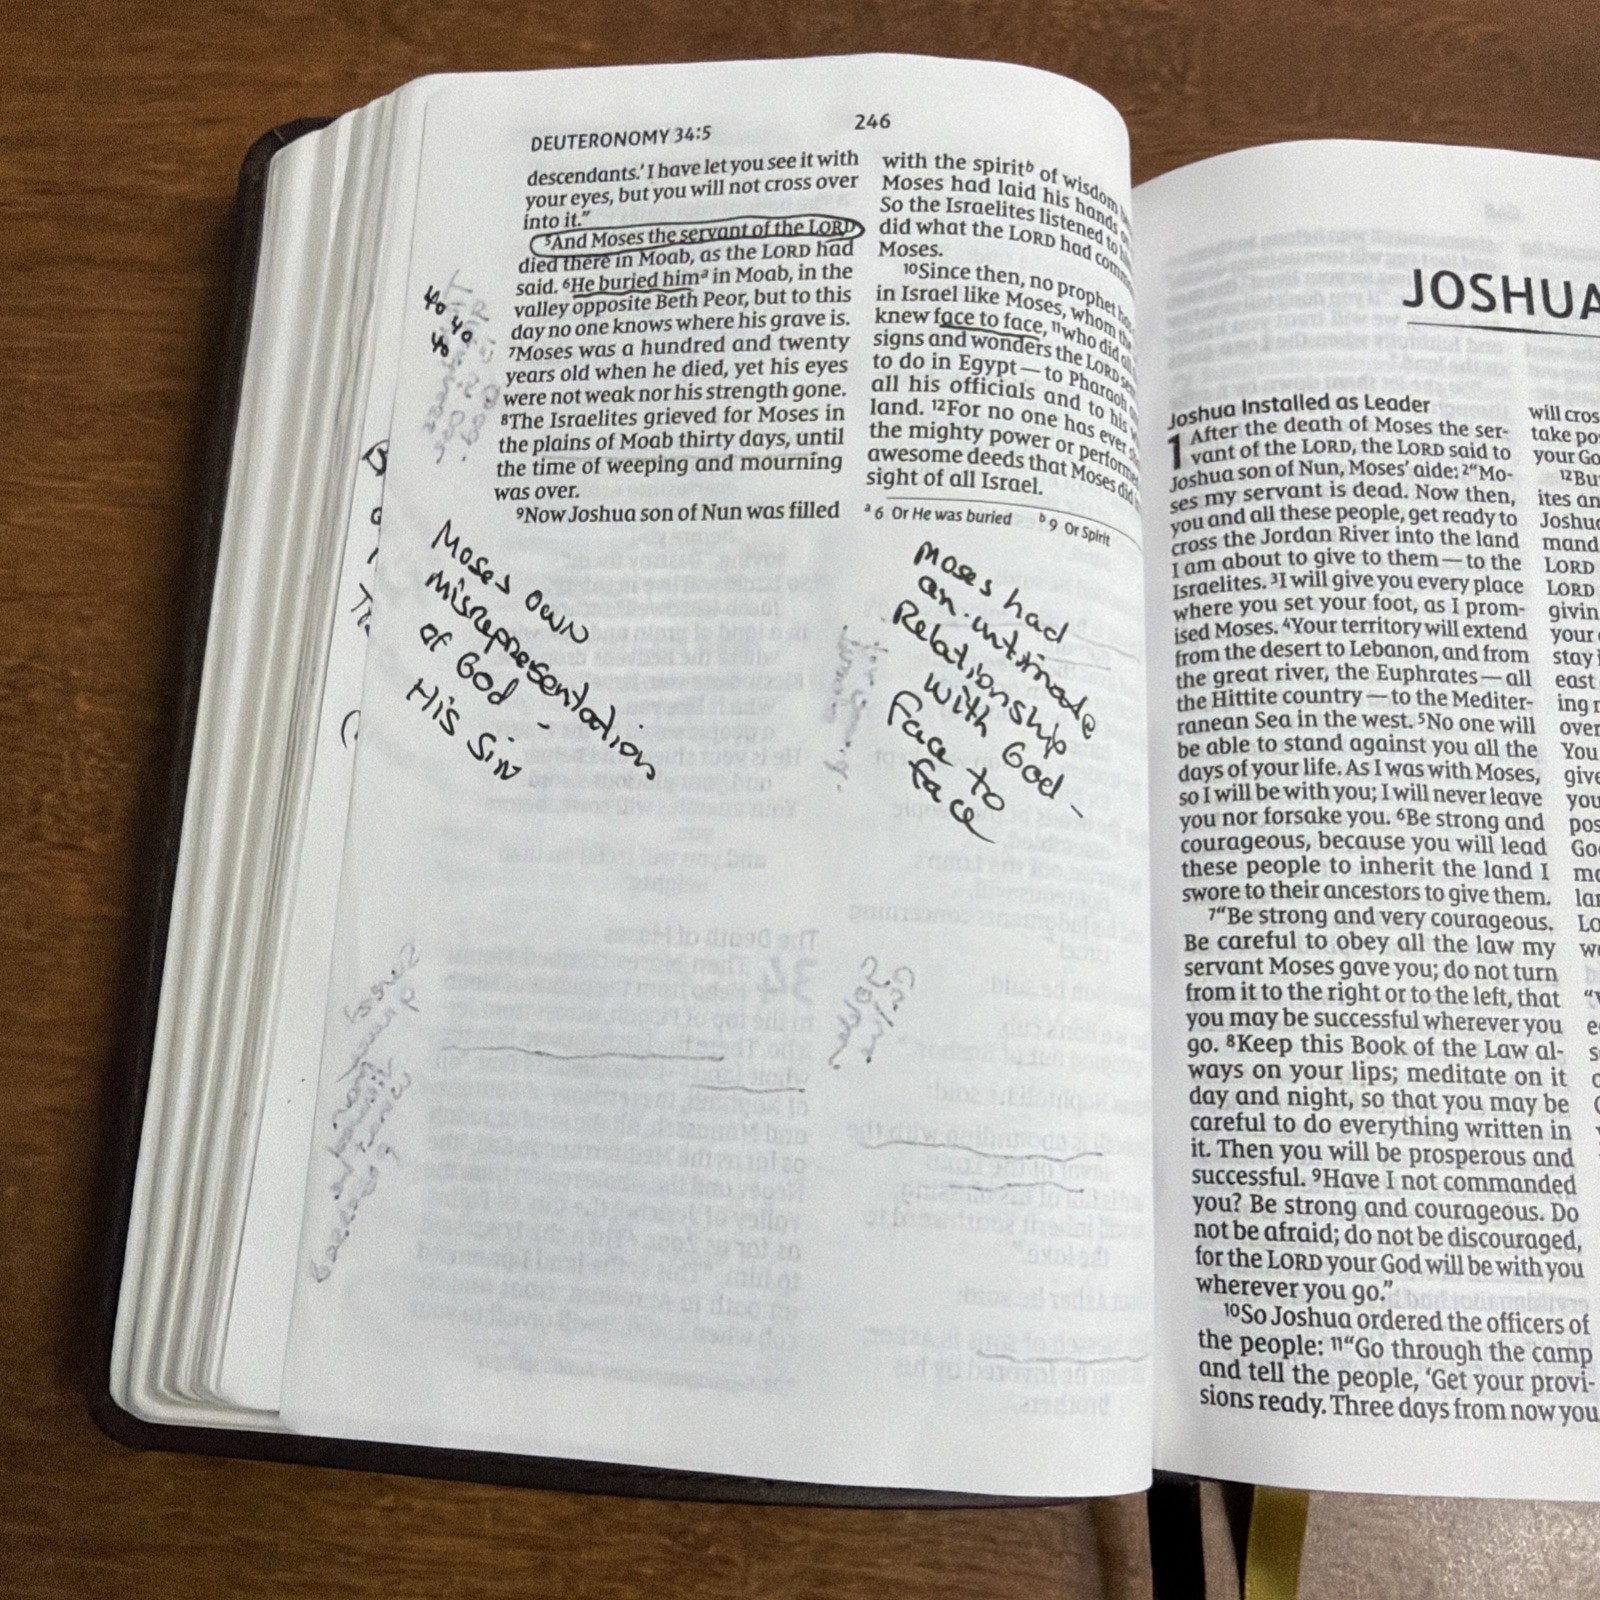 DEUTERONOMY 34:5
246
descendants.' I have let you see it with
your eyes, but you will not cross over
into it."
⁵And Moses the servant of the LORD
died there in Moab, as the LORD had
said. ⁶He buried himᵃ in Moab, in the
valley opposite Beth Peor, but to this
day no one knows where his grave is.
⁷Moses was a hundred and twenty
years old when he died, yet his eyes
were not weak nor his strength gone.
⁸The Israelites grieved for Moses in
the plains of Moab thirty days, until
the time of weeping and mourning
was over.
⁹Now Joshua son of Nun was filled
40
40
40
Moses own
misrepresentation
of God -
His Sin
with the spiritᵇ of wisdom
Moses had laid his hands
So the Israelites listened to
did what the LORD had
Moses.
¹⁰Since then, no prophet
in Israel like Moses, whom
knew face to face, ¹¹who did
signs and wonders the LORD
to do in Egypt — to Pharaoh
all his officials and to his
land. ¹²For no one has ever
the mighty power or
awesome deeds that Moses did
sight of all Israel.
ᵃ 6 Or He was buried ᵇ 9 Or Spirit
Moses had
an intimate
Relationship
with God -
Face to
face
JOSHUA
Joshua Installed as Leader
1 After the death of Moses the ser-
vant of the LORD, the LORD said to
Joshua son of Nun, Moses' aide: ²"Mo-
ses my servant is dead. Now then,
you and all these people, get ready to
cross the Jordan River into the land
I am about to give to them — to the
Israelites. ³I will give you every place
where you set your foot, as I prom-
ised Moses. ⁴Your territory will extend
from the desert to Lebanon, and from
the great river, the Euphrates — all
the Hittite country — to the Mediter-
ranean Sea in the west. ⁵No one will
be able to stand against you all the
days of your life. As I was with Moses,
so I will be with you; I will never leave
you nor forsake you. ⁶Be strong and
courageous, because you will lead
these people to inherit the land I
swore to their ancestors to give them.
⁷"Be strong and very courageous.
Be careful to obey all the law my
servant Moses gave you; do not turn
from it to the right or to the left, that
you may be successful wherever you
go. ⁸Keep this Book of the Law al-
ways on your lips; meditate on it
day and night, so that you may be
careful to do everything written in
it. Then you will be prosperous and
successful. ⁹Have I not commanded
you? Be strong and courageous. Do
not be afraid; do not be discouraged,
for the LORD your God will be with you
wherever you go."
¹⁰So Joshua ordered the officers of
the people: ¹¹"Go through the camp
and tell the people, 'Get your provi-
sions ready. Three days from now you
will cros
take po
your Go
¹²Bu
ites an
Joshu
mand
LORD
LORD
givin
your
stay
east
ing
over
You
give
you
pos